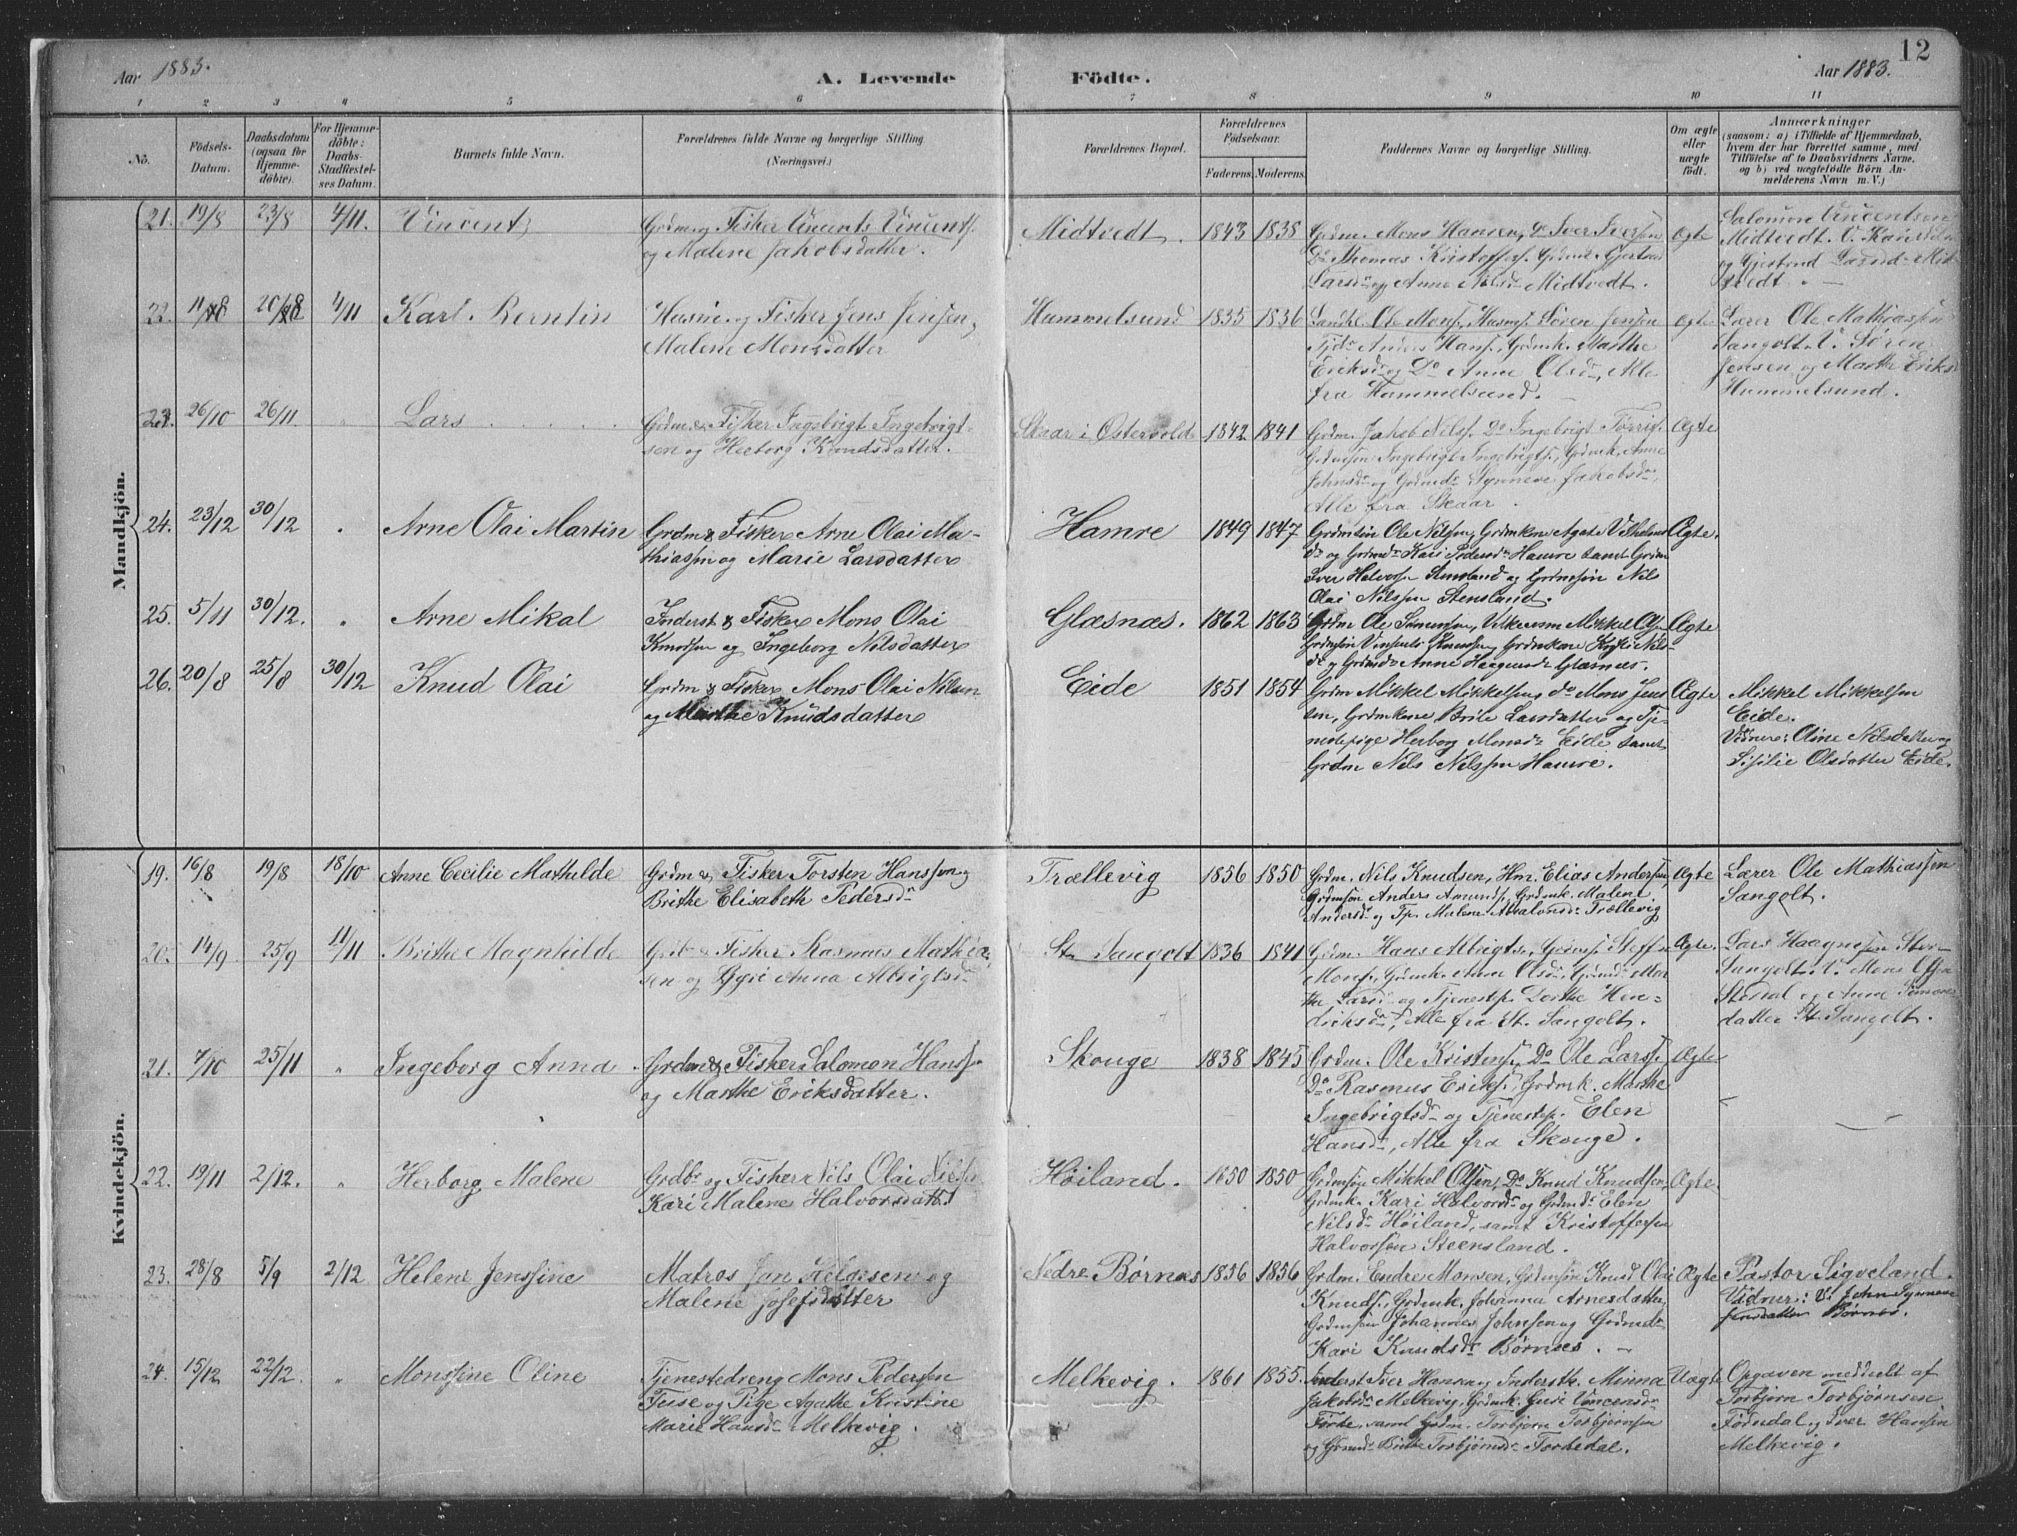 12
Aar 1883.
A. Levende Födte.
Aar 1883.
1 2 3 4 5 6 7 8 9 10 11
No.
Födsels-
Datum.
Daabsdatum
(ogsaa for
Hjemme-
döbte).
For Hjemme-
döbte:
Daabs-
Stadfæstel-
ses Datum.
Barnets fulde Navn.
Forældrenes fulde Navne og borgerlige Stilling
(Næringsvei.)
Forældrenes Bopæl.
Forældrenes
Födselsaar.
Faderens. Moderens.
Faddernes Navne og borgerlige Stilling.
Om ægte
eller
uægte
födt.
Anmærkninger
(saasom: a) i Tilfælde af Hjemmedaab,
hvem der har forrettet samme, med
Tilföielse af to Daabsvidners Navne,
og b) ved uægtefödte Börn An-
melderens Navn m. V.)
Mandkjön.
21. 19/8 23/8 4/11. Vincent
Grdm. og Fisker Vincents Vincents.
og Malene Jakobsdatter.
Midtvedt. 1843 1838
Grdm. Mons Hansen, Do Iver Iversen
Do Thomas Kristoffers. Grdmk. Gjertrud
Larsdr og Anne Nilsdr Midtvedt.
Ægte
Salomon Vincentsen
Midtvedt. V. Kari
og Gjertrud Larsdr Mid-
tvedt.
22. 11/8 20/8 4/11 Karl Berntin
Husm. og Fisker Jens Jensen,
Malene Monsdatter
Hummelsund 1835 1836
Landh. Ole Mons., Husms. Søren Jensen
Tjdr. Anders Hans., Grdmk. Marthe
Eriksdr og Do Anne Olsdr, Alle
fra Hummelsund.
Ægte
Lærer Ole Mathiassen
Sangolt. V. Søren
Jensen og Marthe Eriksd.
Hummelsund.
23. 26/10 26/11 " Lars
Grdm. & Fisker Ingebrigt Ingebrigt-
sen og Herborg Knudsdatter.
Skaar i Østervold 1842 1841
Grdm. Jakob Nils. Do Ingebrigt Torris.
Grdmsøn Ingebrigt Ingebrigts., Grdmk. Anne
Johnsdr og Grdmdr Synneve Jakobsdr,
Alle fra Skaar.
Ægte
24. 23/12 30/12 " Arne Olai Martin
Grdm & Fisker Arne Olai Ma-
thiassen og Marie Larsdatter
Hamre 1849 1847
Grdmsøn Ole Nilsen, Grdmkone Agate Vilhelms-
dr og Grdmdr Kari Pedersdr Hamre samt Grdm
Iver Halvorsen Stensland og Grdmsøn Nils
Olai Nilssen Stensland.
Ægte.
25. 5/11 30/12. " Arne Mikal
Inderst & Fisker Mons Olai
Knudsen og Ingeborg Nilsdatter
Glæsnæs. 1862 1863
Grdm Ole Simonsen, Mikkel Olsen
Grdmsøn Vinsents Knudsen, Grdmkone Nils-
dr og Grdmdr Anne Haagensdr Glæsnæs.
Ægte
26. 20/8 25/8 30/12 Knud Olai
Grdm & Fisker Mons Olai Nilsen
og Marthe Knudsdatter
Eide 1851 1854
Grdm Mikkel Mikkelsen, do Mons Jens-
sen, Grdmkone Brite Larsdatter og Tje-
nestepige Herborg Monsdr Eide samt
Grdm Nils Nilssen Hamre.
Ægte
Mikkel Mikkelsen
Eide.
Vidner: Oline Nilsdatter og
Sisilie Olsdatter Eide.
Kvindekjön.
19. 16/8 19/8 18/10 Anne Cecilie Mathilde
Grdm & Fisker Torsten Hanssen og
Brithe Elisabeth Pedersdr
Trællevig 1856 1850
Grdm. Nils Knudsen, Hm. Elias Andersen,
Grdmsøn Anders Amunds., Grdmk. Malene
Andersdr og Tp. Malene Absalonsdr Trællevig
Ægte
Lærer Ole Mathiassen
Sangolt.
20. 14/9 25/9 11/11 Brithe Magnhilde
Grdb & Fisker Rasmus Mathia-
sen og Gyri Anna Albrigtsdr
St. Sangolt 1836 1841
Grdm. Hans Albrigts., Grdms. Steffen
Mons., Grdmk. Anne Olsdr, Grdmdr Mar-
the Larsdr og Tjenestep. Dorthe Hen-
driksdr, Alle fra St. Sangolt.
Ægte.
Lars Haagensen Stor-
Sangolt. V. Mons Olsen
Stordal og Anne Simons-
datter St. Sangolt.
21. 7/10 25/11 " Ingeborg Anna
Grdm & Fisker Salomon Hanss.
og Marthe Eriksdatter.
Skouge 1838 1845
Grdm. Ole Kristens., Do Ole Larss.
Do Rasmus Eriks., Grdmk. Marthe
Ingebrigtsdr og Tjenestep. Elen
Hansdr, Alle fra Skouge.
Ægte
22. 19/11 2/12. " Herborg Malene
Grdbr og Fisker Nils Olai Nilsen
Kari Malene Halvorsdatter
Høiland. 1850 1850
Grdmsøn Mikkel Olsen, Do Knud Knudsen,
Grdmk. Kari Halvorsdr og Grdmdr Elen
Nilsdr Høiland, samt Kristoffersen
Halvorsen Steensland.
Ægte.
23. 28/8 5/9 2/12 Helene Jenssine
Matros Jan Helgesen og
Malene Josefsdatter
Nedre Børnæs 1856 1856
Grdm. Endre Monsen, Grdmsøn Knud Olai
Knuds., Grdmk. Johanna Arnesdatter,
Grdmsøn Johannes Johnsen og Grdmdr
Kari Knudsdr Børnæs.
Ægte
Pastor Sigveland.
Vidner: V. John Synneve
Børnæs.
24. 15/12 22/12. " Monssine Oline
Tjenestedreng Mons Pedersen
Teise og Pige Agathe Kristine
Marie Hansdr Melkevig.
Melkevig. 1861 1855.
Inderst Iver Hansen og Inderstk. Minna
Jakobsdr Melkevig, Grdmk. Guri Vincensdr
Førde, samt Grdm. Torbjørn Torbjørnsen
og Grdmdr Brithe Torbjørnsdr Førdedal.
Uægte
Opgaven meddelt af
Torbjørn Torbjørnsen
Førdedal og Iver Hansen
Melkevig.